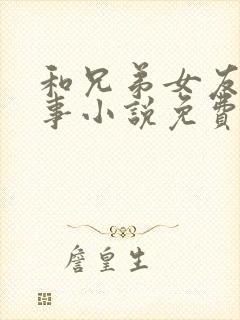 和兄弟女友
事小說免費
詹皇生